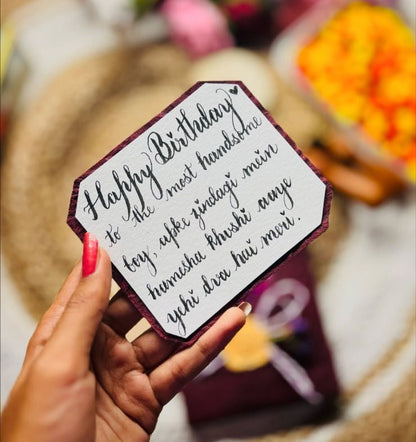 Happy Birthday ♥
to the most handsome
boy, apke zindagi mein
hamesha khushi aaye
yhi dua hai meri.